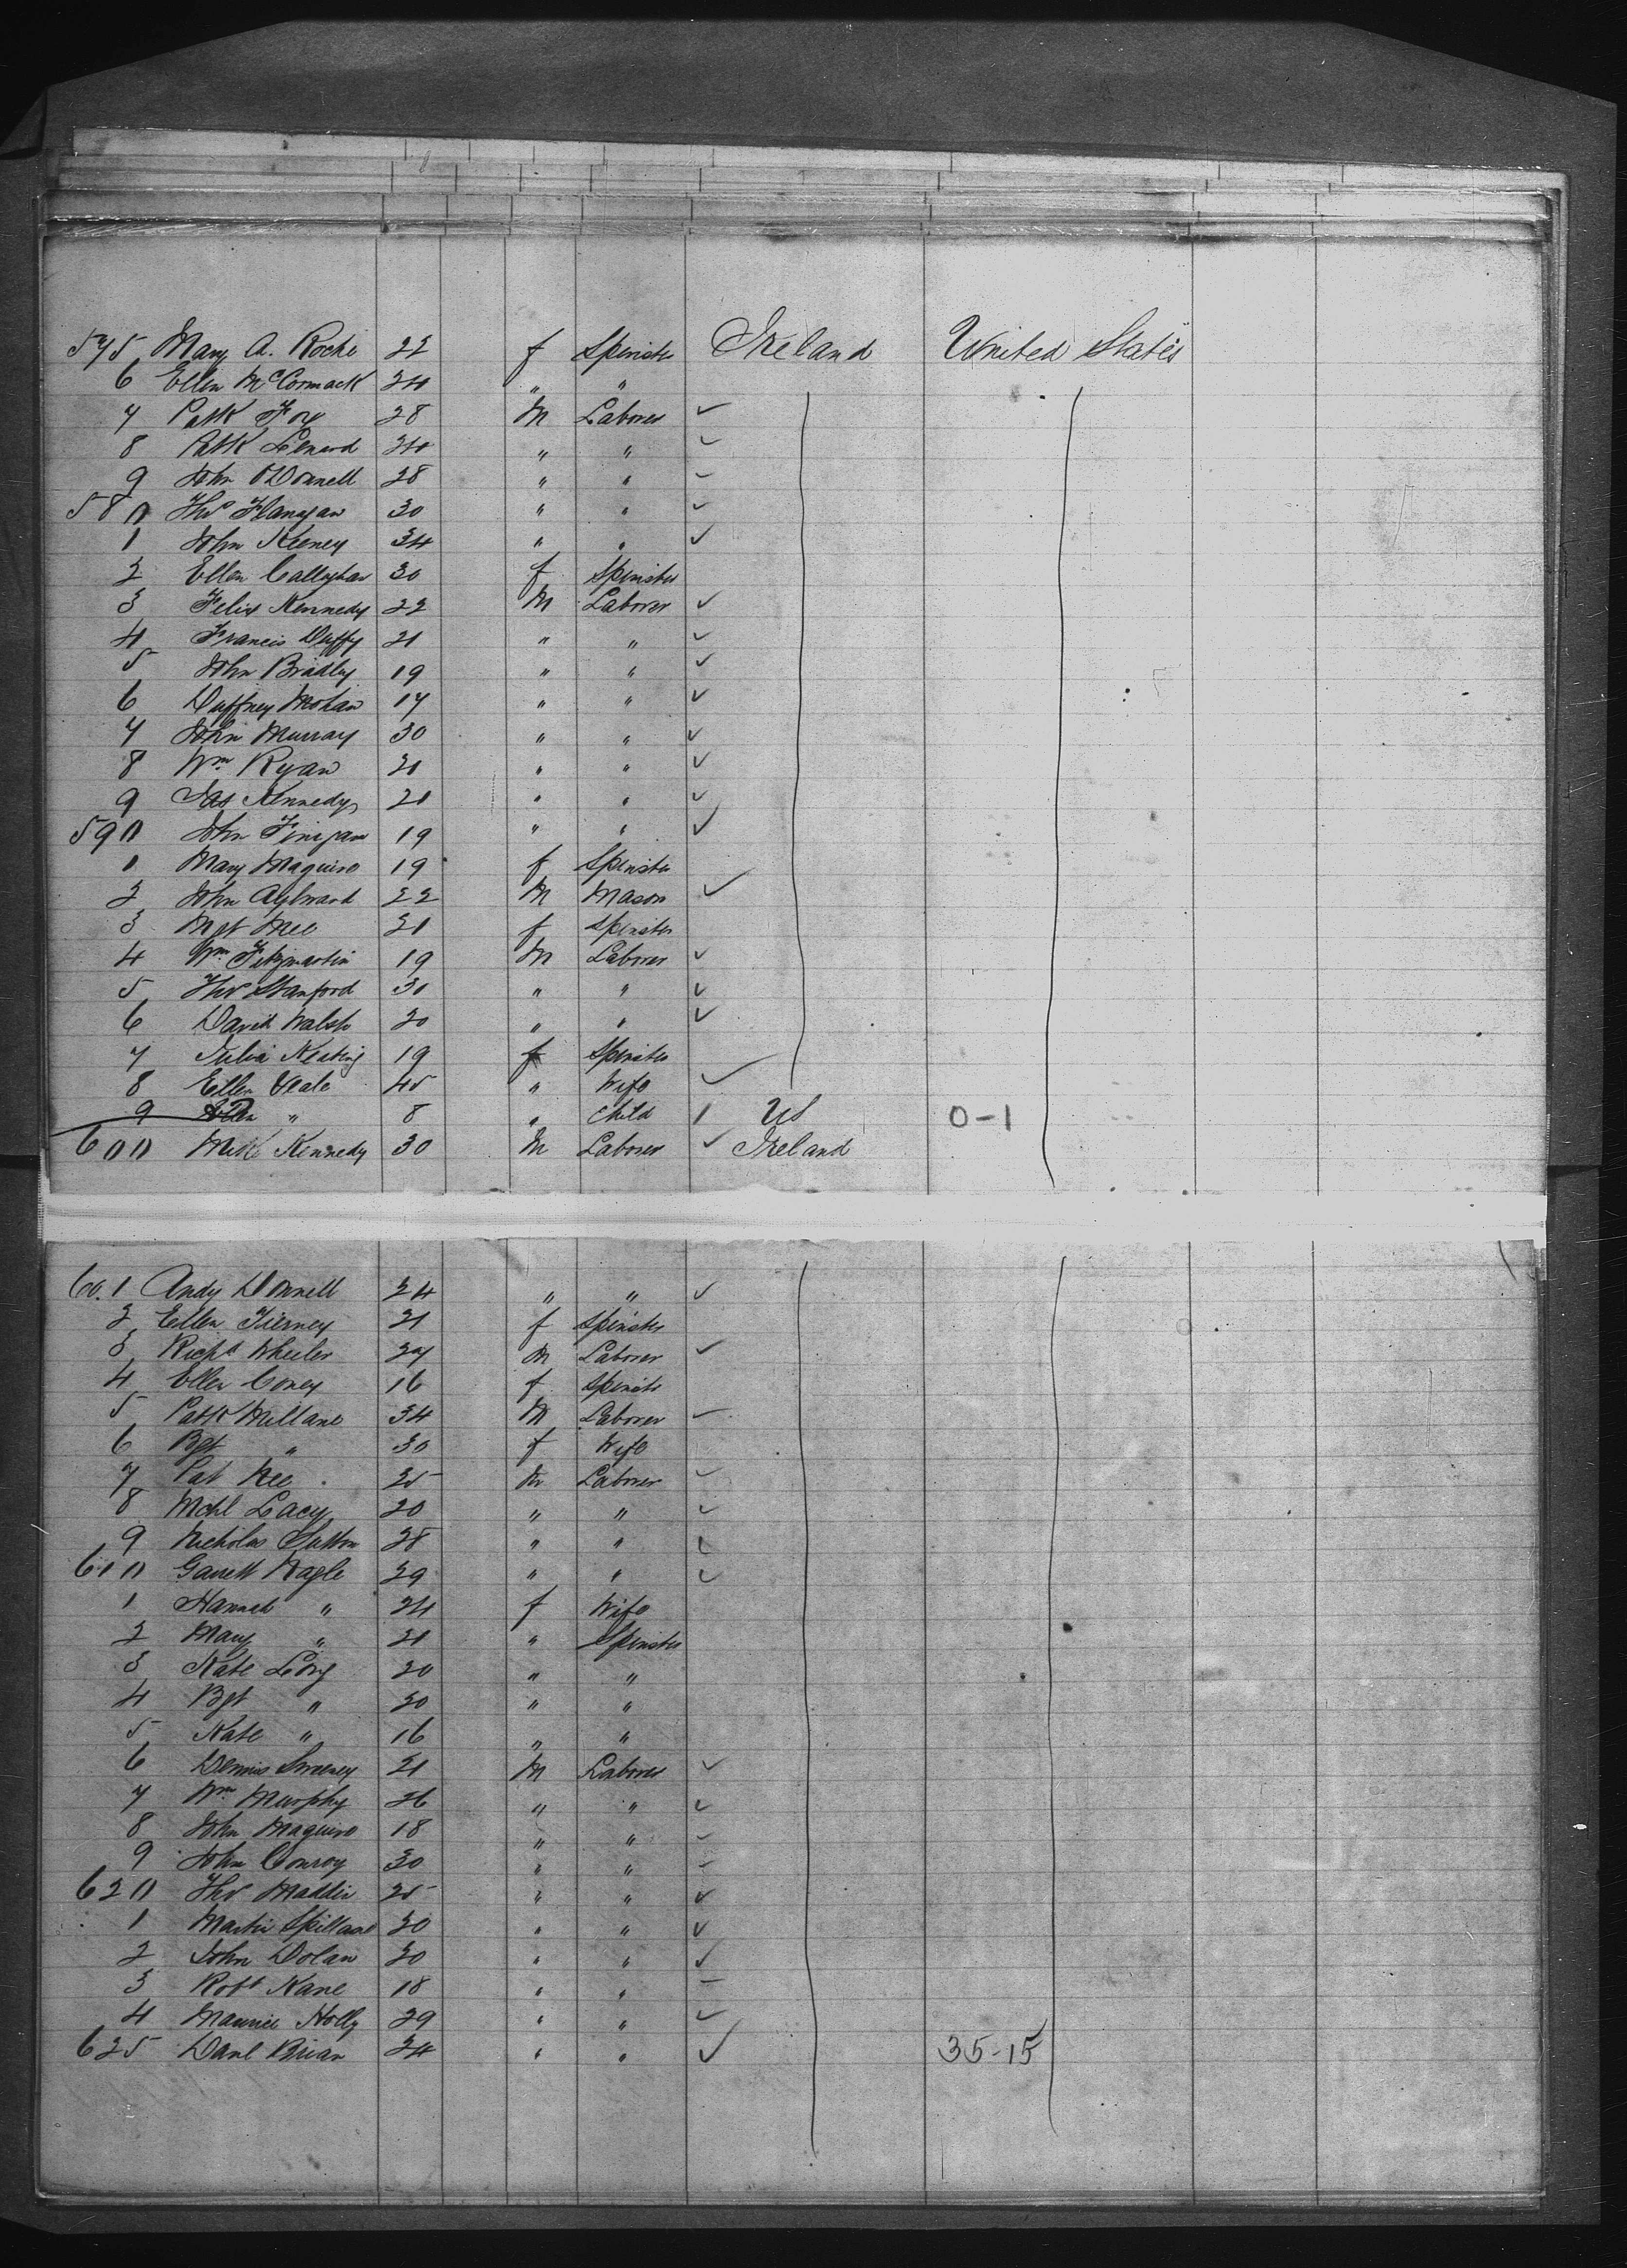 575 Mary A. Roche 22 f Spinster Ireland United States
6 Ellen McCormack 24 " "
7 Patk Foy 28 M Laborer ✓
8 Patk Lenard 24 " " ✓
9 John O'Donnell 28 " " ✓
580 Thos Flanagan 30 " " ✓
1 John Keeney 34 " " ✓
2 Ellen Callaghan 30 f Spinster
3 Felix Kennedy 22 M Laborer ✓
4 Francis Duffy 21 " " ✓
5 John Bradley 19 " " ✓
6 Duffney Mohan 17 " " ✓
7 John Murray 30 " " ✓
8 Wm Ryan 21 " " ✓
9 Jas Kennedy 21 " " ✓
590 John Finigan 19 " " ✓
1 Mary Maguire 19 f Spinster
2 John Aylward 22 M Mason ✓
3 Mgt Mee 21 f Spinster
4 Wm Fitzmartin 19 M Laborer ✓
5 Thos Stanford 31 " " ✓
6 David Walsh 20 " " ✓
7 Julia Keating 19 f Spinster
8 Ellen Veale 45 " Wife ✓
9 Ellen " 8 " Child 1 US 0-1
600 Mick Kennedy 30 M Laborer ✓ Ireland
601 Andy Donnell 24 " " ✓
2 Ellen Tierney 21 f Spinster
3 Richd Wheeler 27 M Laborer ✓
4 Ellen Coney 16 f Spinster
5 Patk Millane 34 M Laborer ✓
6 Bgt " 30 f Wife
7 Pat Nee 25 M Laborer ✓
8 Mchl Lacy 20 " " ✓
9 Nicholas Sutton 28 " " ✓
610 Garrett Nagle 29 " " ✓
1 Hannah " 24 f Wife
2 Mary " 21 " Spinster
3 Kate Long 20 " "
4 Bgt " 20 " "
5 Kate " 16 " "
6 Dennis Sweeney 21 M Laborer ✓
7 Wm Murphy 26 " " ✓
8 John Maguire 18 " " ✓
9 John Conroy 30 " " ✓
620 Thos Maddin 25 " " ✓
1 Martin Spillane 20 " " ✓
2 John Dolan 20 " " ✓
3 Robt Kane 18 " " –
4 Maurice Holly 29 " " ✓
625 Danl Brian 24 " " ✓ 35-15